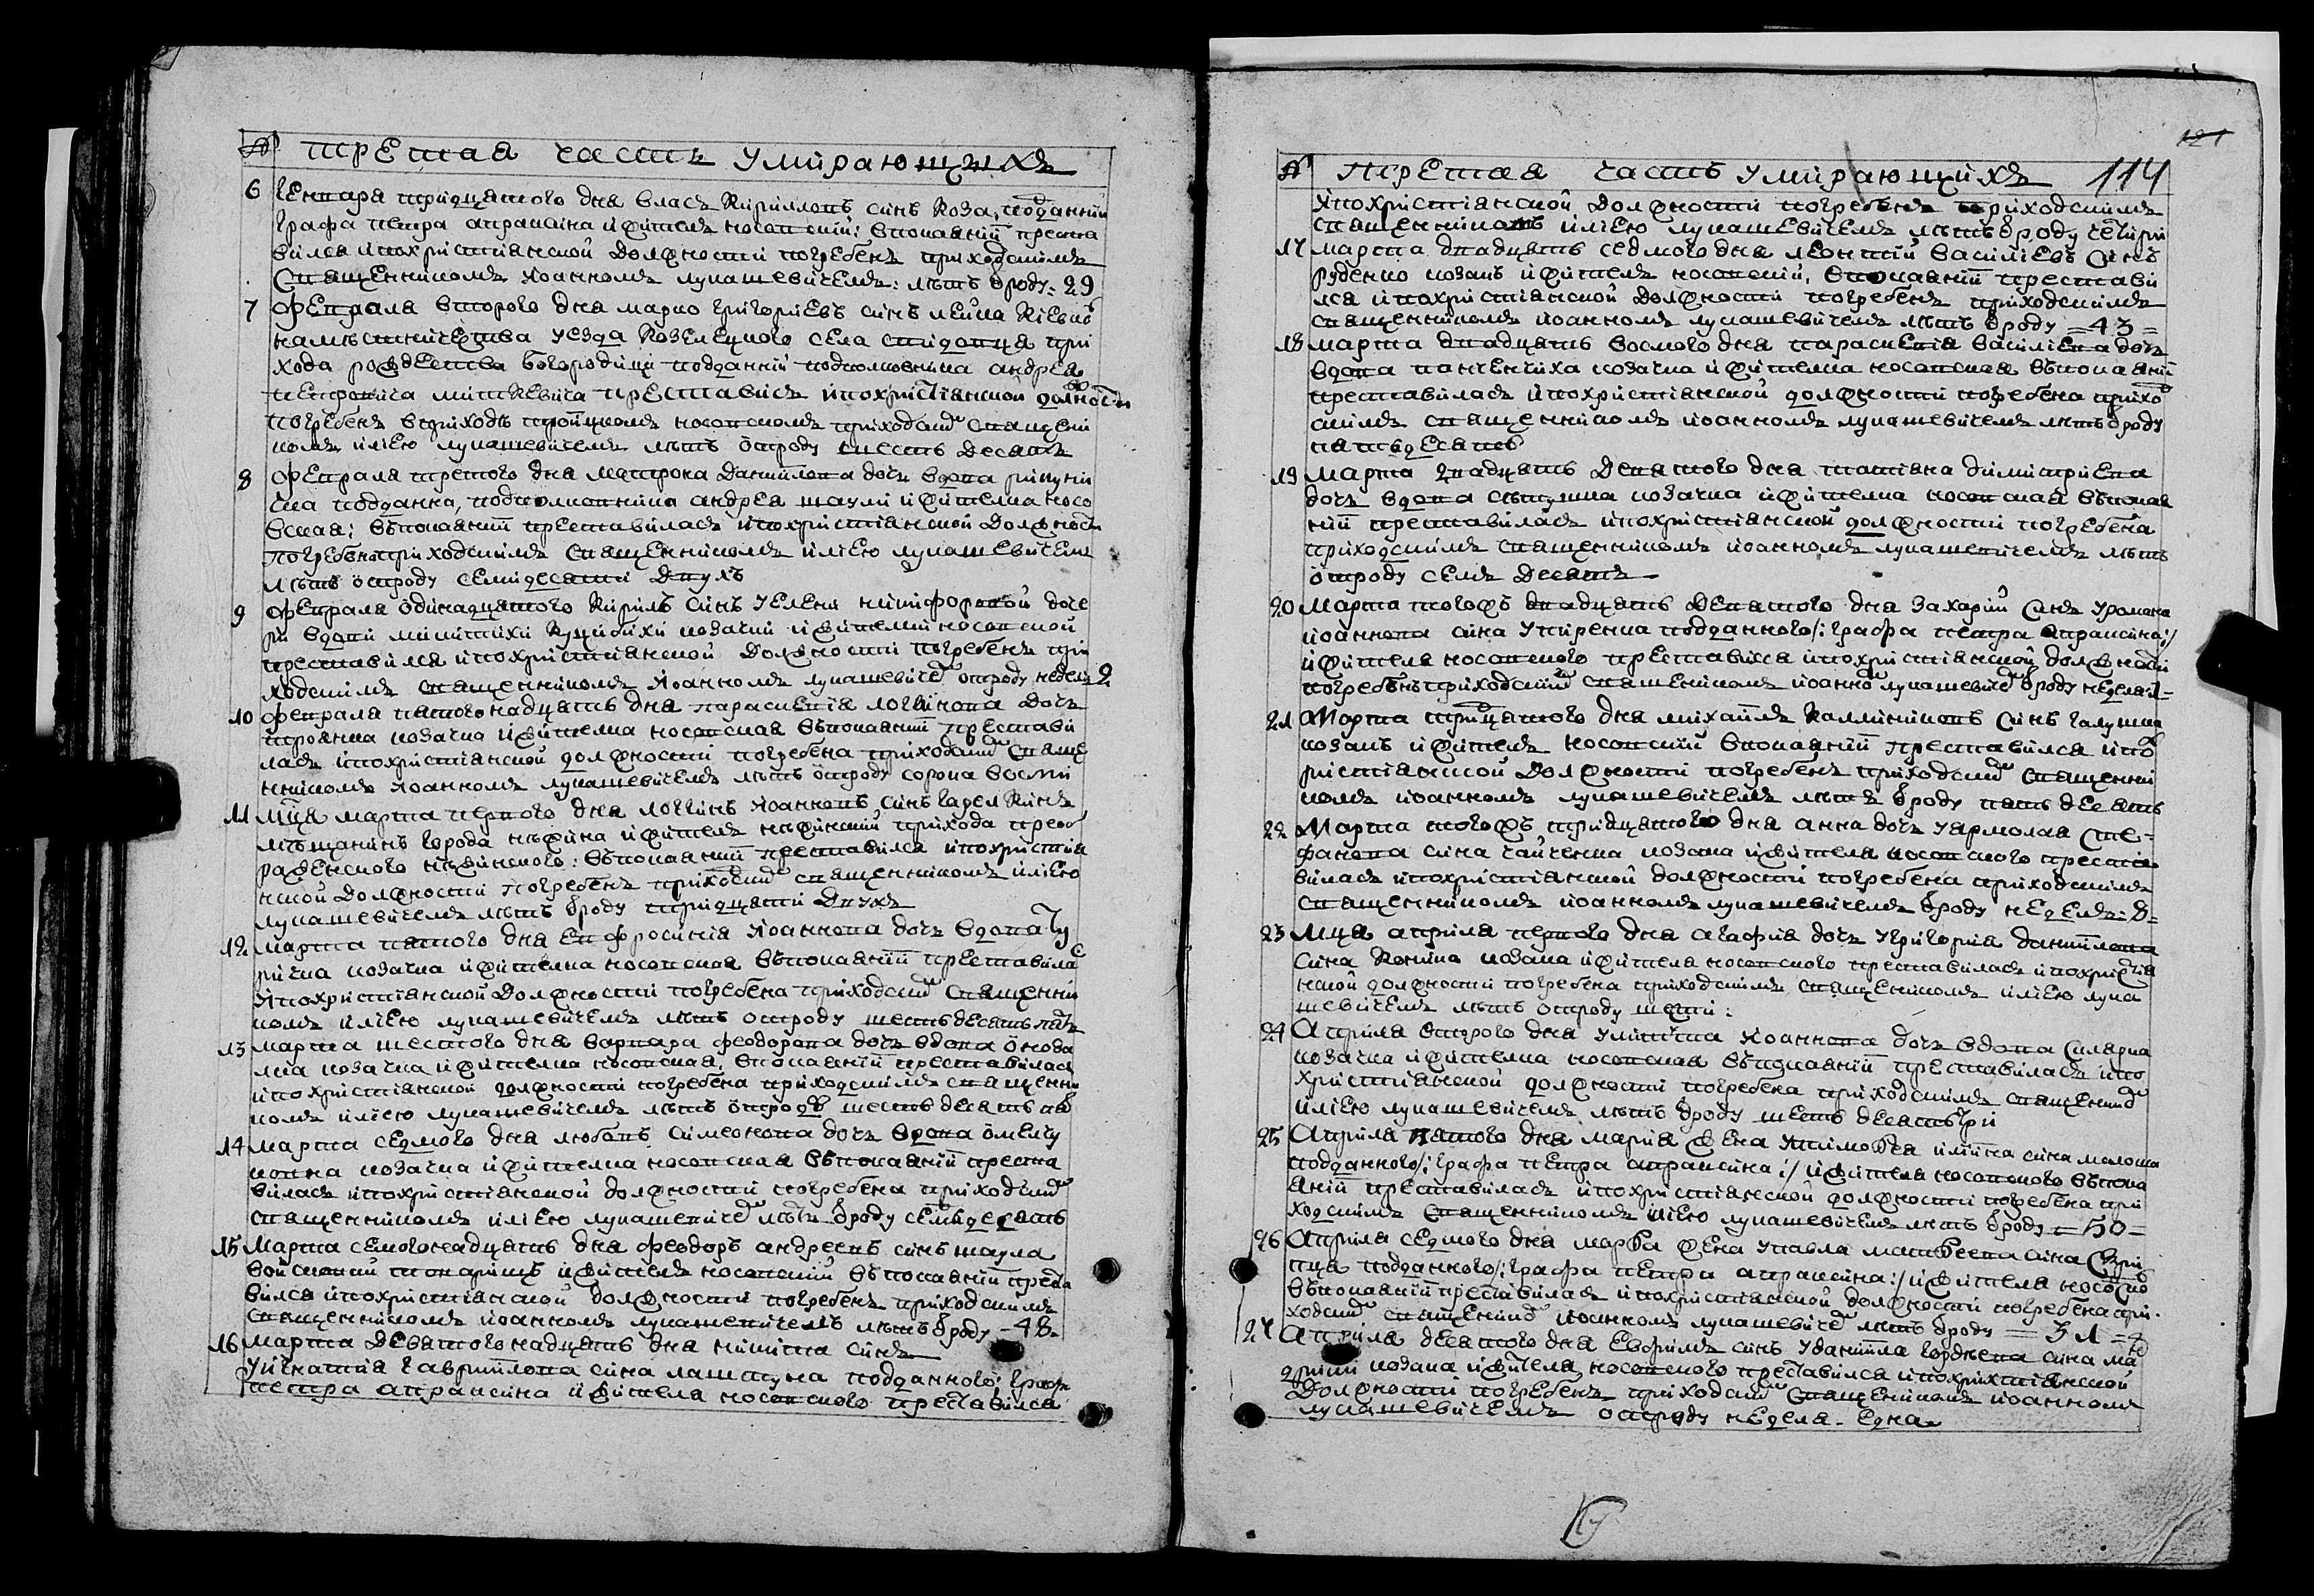 № третая часть умирающихъ
6 Генвара тридцатого дня власъ Кирилловъ синъ Коза, подданний
графа петра апраксина и житель носовский: вПокаяний преста
вился ипохристианской должности погребенъ приходскимъ
Священникомъ Иоанномъ лукашевичемъ: лѣтъ ѿроду: 29
7 Февраля второго дня марко григориевъ синъ лейка Киевск
намѣстничества уезда Козелецкого села свидовца при
хода рождества богородици подданний подполковника андрея
петровича миткевича преставись ипохристианской должности
погребенъ вприходѣ троицкомъ носовскомъ приходским Священи
комъ илиею лукашевичемъ лѣтъ ѿтроду шесть Десатъ
8 Февраля третого дня матрона Данилова дочъ вдова
подданка, подполковника андрея и жителка носо
вская: вПокаяний преставилась ипохристианской Должности
погребена приходскимъ Священникомъ илиею лукашевичемъ
лѣтъ ѿтроду семидесати Двухъ
9 Февраля одинадцатого Кирилъ синъ уелени никифоровой доче
ри вдови микитихи Куцибихи козачки и жителки носовской
преставился ипохристианской Должности погребенъ при
ходскимъ священникомъ Иоанномъ лукашевичем ѿтроду неделъ 2
10 февраля патогонадцать дня параскевиа логвинова Дочъ
троянка козачка и жителка носовская вПокаяний Престави
лась ипохристианской должности погребена приходским Священ
никомъ Иоанномъ лукашевичемъ лѣтъ ѿтроду сорока восми
11 Мця марта первого дня логгинъ Иоанновъ синъ
мѣщанинъ города нѣжина и житель нѣжинский прихода преоб
раженского нѣжинского: вПокаяний преставился ипохристиа
нской Должности погребенъ приходским священникомъ илиею
лукашевичемъ лѣтъ ѿроду тридцати Двухъ
12 марта патого дня Евфросиниа Иоаннова дочъ вдова Гу
ричка козачка и жителка носовская вПокаяний преставилас
ипохристианской Должности погребена приходским Священни
комъ илиею лукашевичемъ лѣтъ ѿтроду шестьдесатъ пять
13 марта шестого дня варвара феодорова дочъ вдова
козачка и жителка носовская, вПокаяний преставилась
ипохристианской должности погребена приходскимъ священни
комъ илиею лукашевичемъ лѣтъ ѿтроду шестьдесатъ
14 марта седмого дня любовъ Симеонова дочъ вдова омелч
козачка и жителка носовская вПокаяний преста
вилась ипохристианской должности погребена приходским
священникомъ илиею лукашевичем лѣтъ ѿроду семьдесатъ
15 Марта семогонадцать дня феодоръ андреевъ синъ шаула
войсковий товарищъ и житель носовский вПокаяний преста
вился ипохристианской должности погребенъ приходскимъ
священникомъ иоанномъ лукашевичемъ лѣтъ ѿроду - 48 -
16 марта Деватогонадцать дня никита синъ
уигнатиа гавриилова сина лаштуна подданного: графа
петра апраксина и жителя носовского преставился
№ третая часть умирающихъ 114
ипохристианской должности погребенъ приходскимъ
священникомъ илиею лукашевичемъ лѣтъ ѿроду четири
17 марта двадцать седмого дня леонтий василиевъ синъ
руденко козакъ и житель носовский, вПокаяний престави
лся ипохристианской должности погребенъ приходскимъ
священникомъ иоанномъ лукашевичемъ лѣтъ ѿроду = 43 =
18 марта двадцать восмого дня параскевиа василиева дочъ
вдова панченчиха козачка и жителка носовская вПокаяний
преставилась ипохристианской должности погребена прихо
скимъ священникомъ иоанномъ лукашевичемъ лѣтъ ѿроду
патьдесатъ
19 Марта двадцать Деватого дня татиана димитриева
дочъ вдова козачка и жителка носовская вПокая
ний преставилась ипохристианской должности погребена
приходскимъ священникомъ иоанномъ лукашевичемъ лѣтъ
ѿтроду семъ Десатъ
20 Марта тогожъ двадцать Деватого дня Захарий синъ уромана
иоаннова сина подданного /: графа петра апраксина :/
и жителя носовского преставился ипохристианской должности
погребенъ приходским священикомъ иоанном лукашевичем ѿроду неделя 1 =
21 Марта тридцатого дня михаилъ Каллиниковъ синъ галушка
козакъ и житель носовский вПокаяний преставился ипох
ристианской Должности погребенъ приходским священни
комъ иоанномъ лукашевичемъ лѣтъ ѿроду патьдесатъ
22 Марта тогожъ тридцатого дня анна дочъ уармолая Сте-
фанова сина козака и жителя носовского преста
вилась ипохристианской должности погребена приходскимъ
священникомъ иоанномъ лукашевичемъ ѿроду неделъ: 8 =
23 Мця априля первого дня агафиа дочъ угригориа даниилова
Сина козака и жителя носовского преставилась ипохристиа
нской должности погребена приходскимъ священикомъ илиею лука
шевичемъ лѣтъ ѿтроду шести:
24 Априля второго дня улиянна Иоаннова дочъ вдова
козачка и жителка носовская вПокаяний преставилась ипо
христианской должности погребена приходскимъ священником
илиею лукашевичемъ лѣтъ ѿроду шестьдесатътри
25 Априля Патого дня мариа жена утимофея илиина сина
подданного /: графа петра апраксина :/ и жителя носовского вПока
яний преставилась ипохристианской должности погребена при
ходскимъ священникомъ илиею лукашевичемъ лѣтъ ѿроду = 50 =
26 Априля седмого дня марфа жена упавла матфеева сина
подданного /: графа петра апраксина :/ и жителя носовско
вПокаяний преставилась ипохристианской должности погребена при-
ходским священником иоанномъ лукашевичем лѣтъ ѿроду = 31 =
27 Априля десатого дня Евфимъ синъ уданиила гордѣева сина
козака и жителя носовского преставился ипохристианской
должности погребенъ приходским священикомъ иоанномъ
лукашевичемъ отроду неделя - една